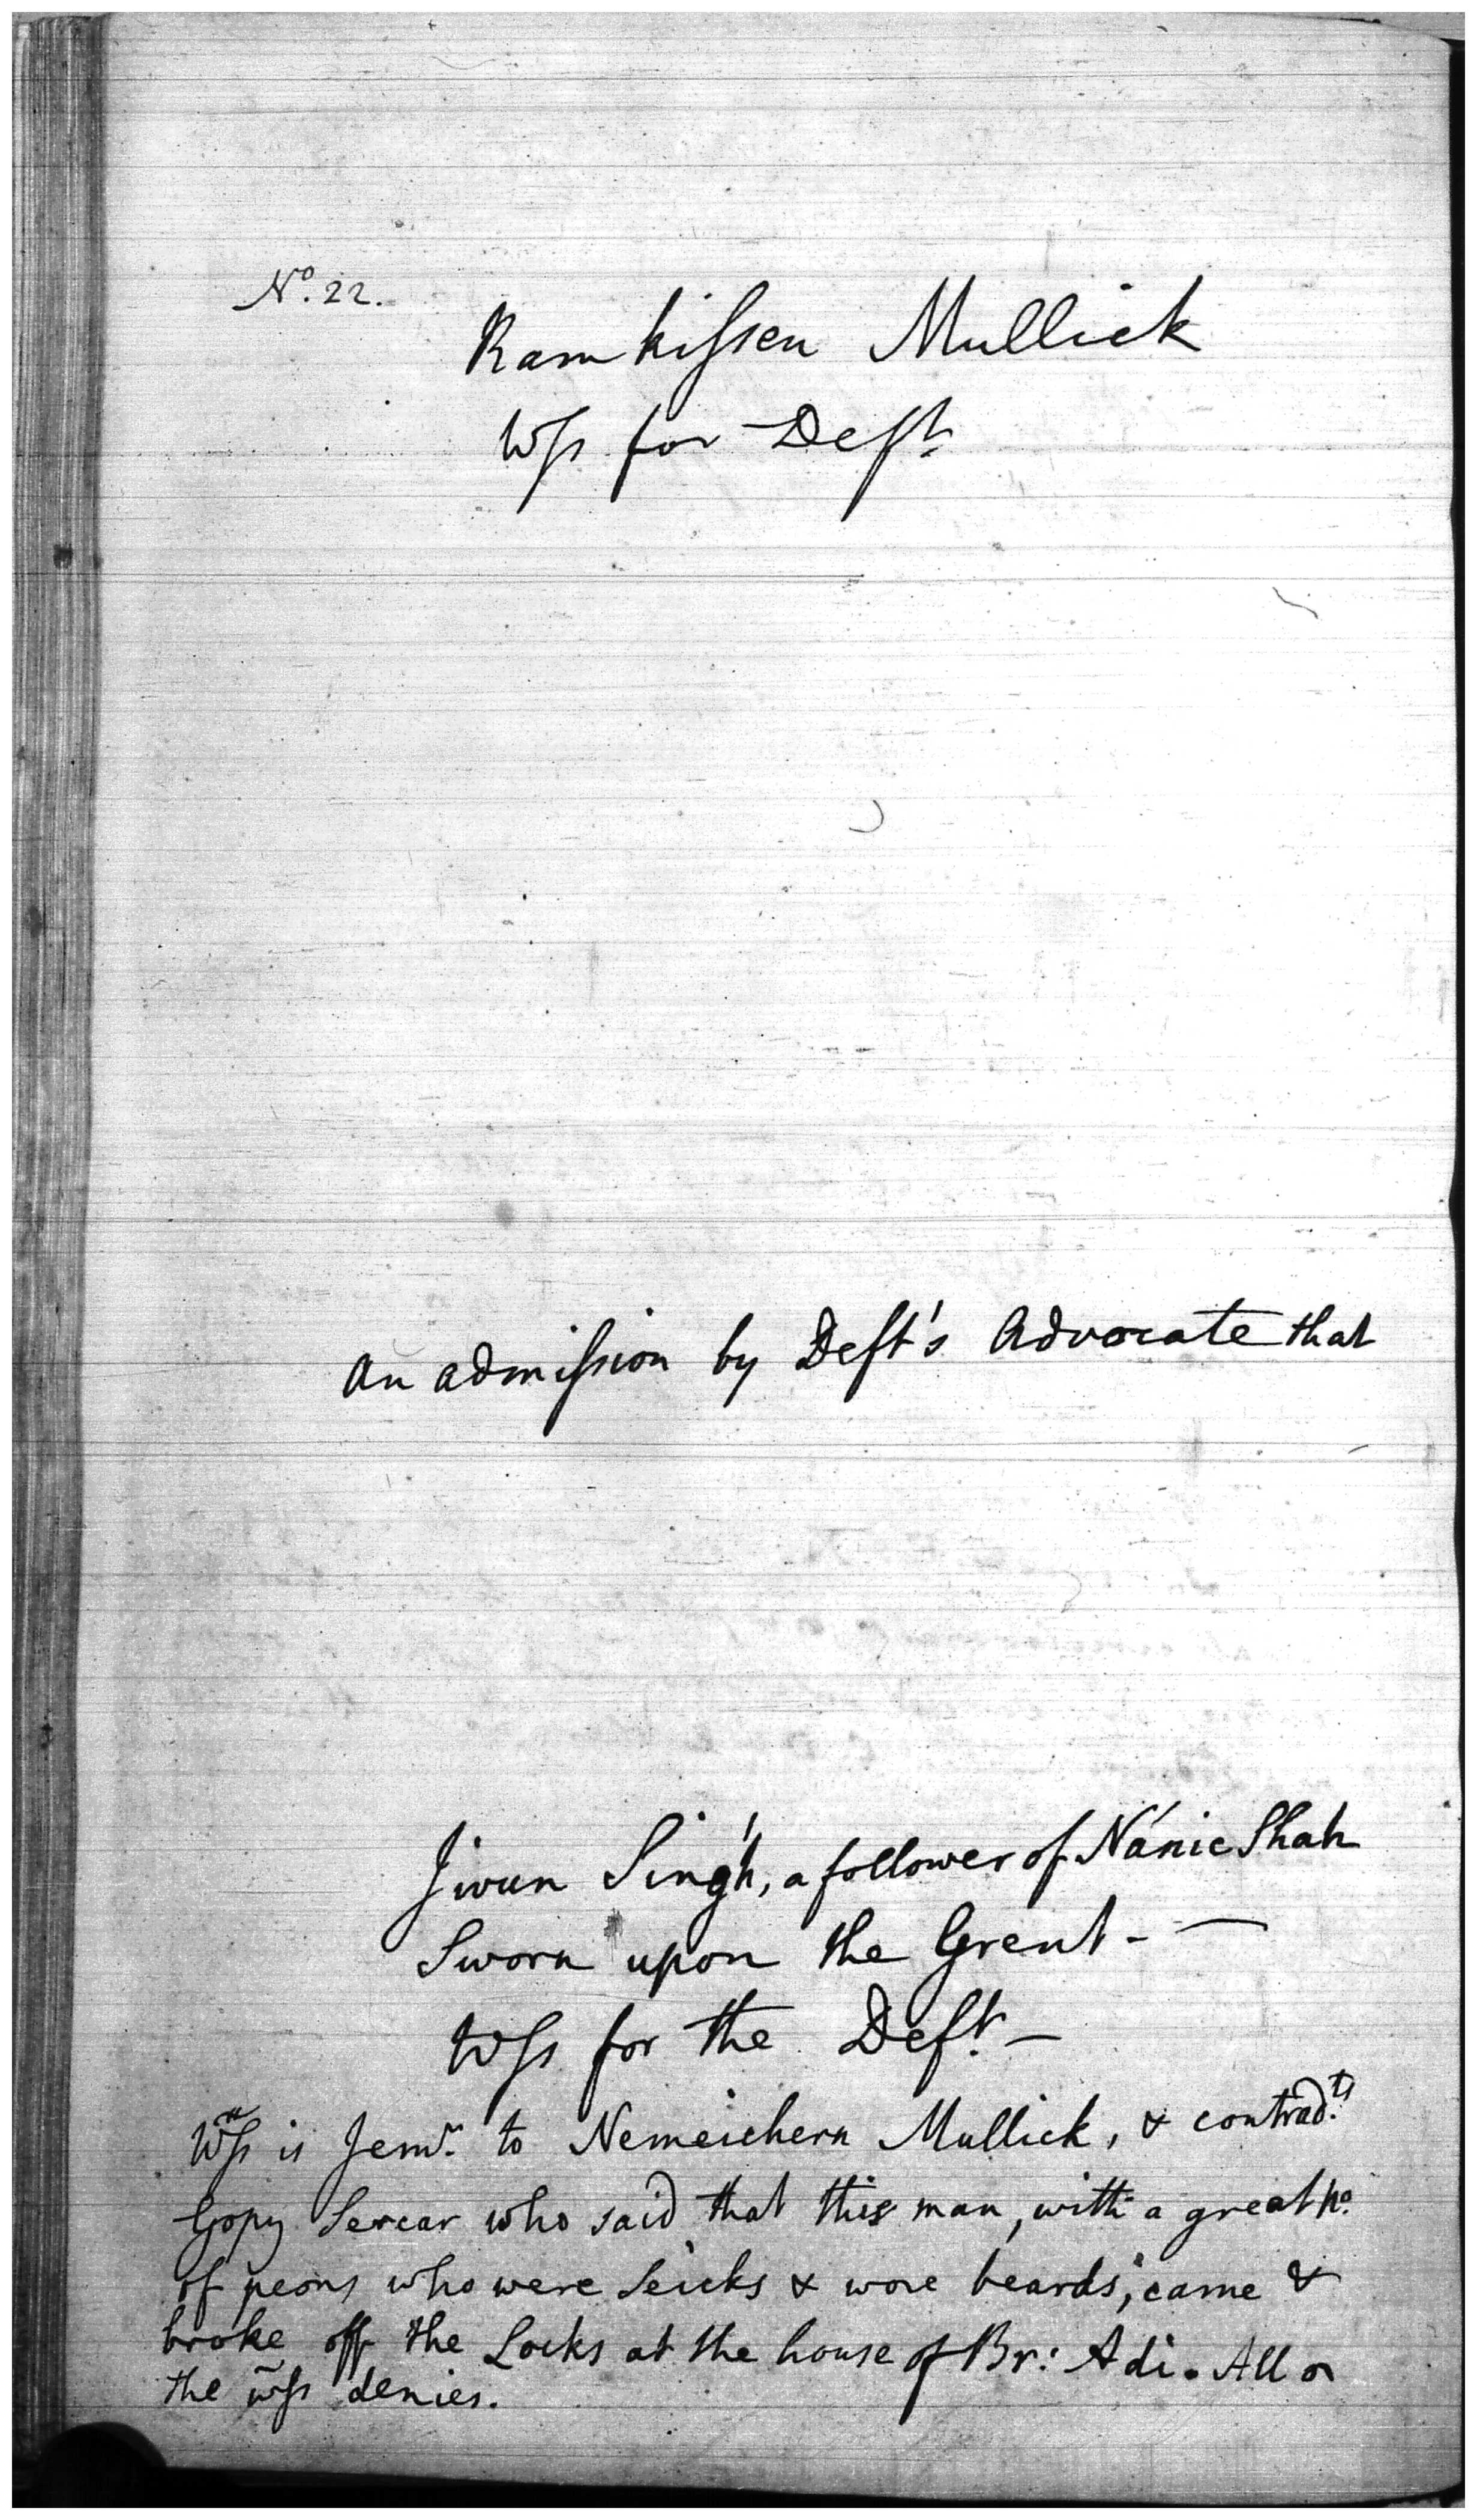 No. 22.
Ramkissen Mullick
Wss for Deft
An admission by Deft's Advocate that
Jiwun Sing'h, a follower of Nánic Shah
Sworn upon the Grent -
Wss for the Deft. -
Wss is Jemr. to Nemeichern Mullick, & contrad.ts
Gopy Sercar who said that this man, with a great No.
of peons who were Seicks & wore beards, came &
broke off the Locks at the house of Br: Adi. All
the wss denies.